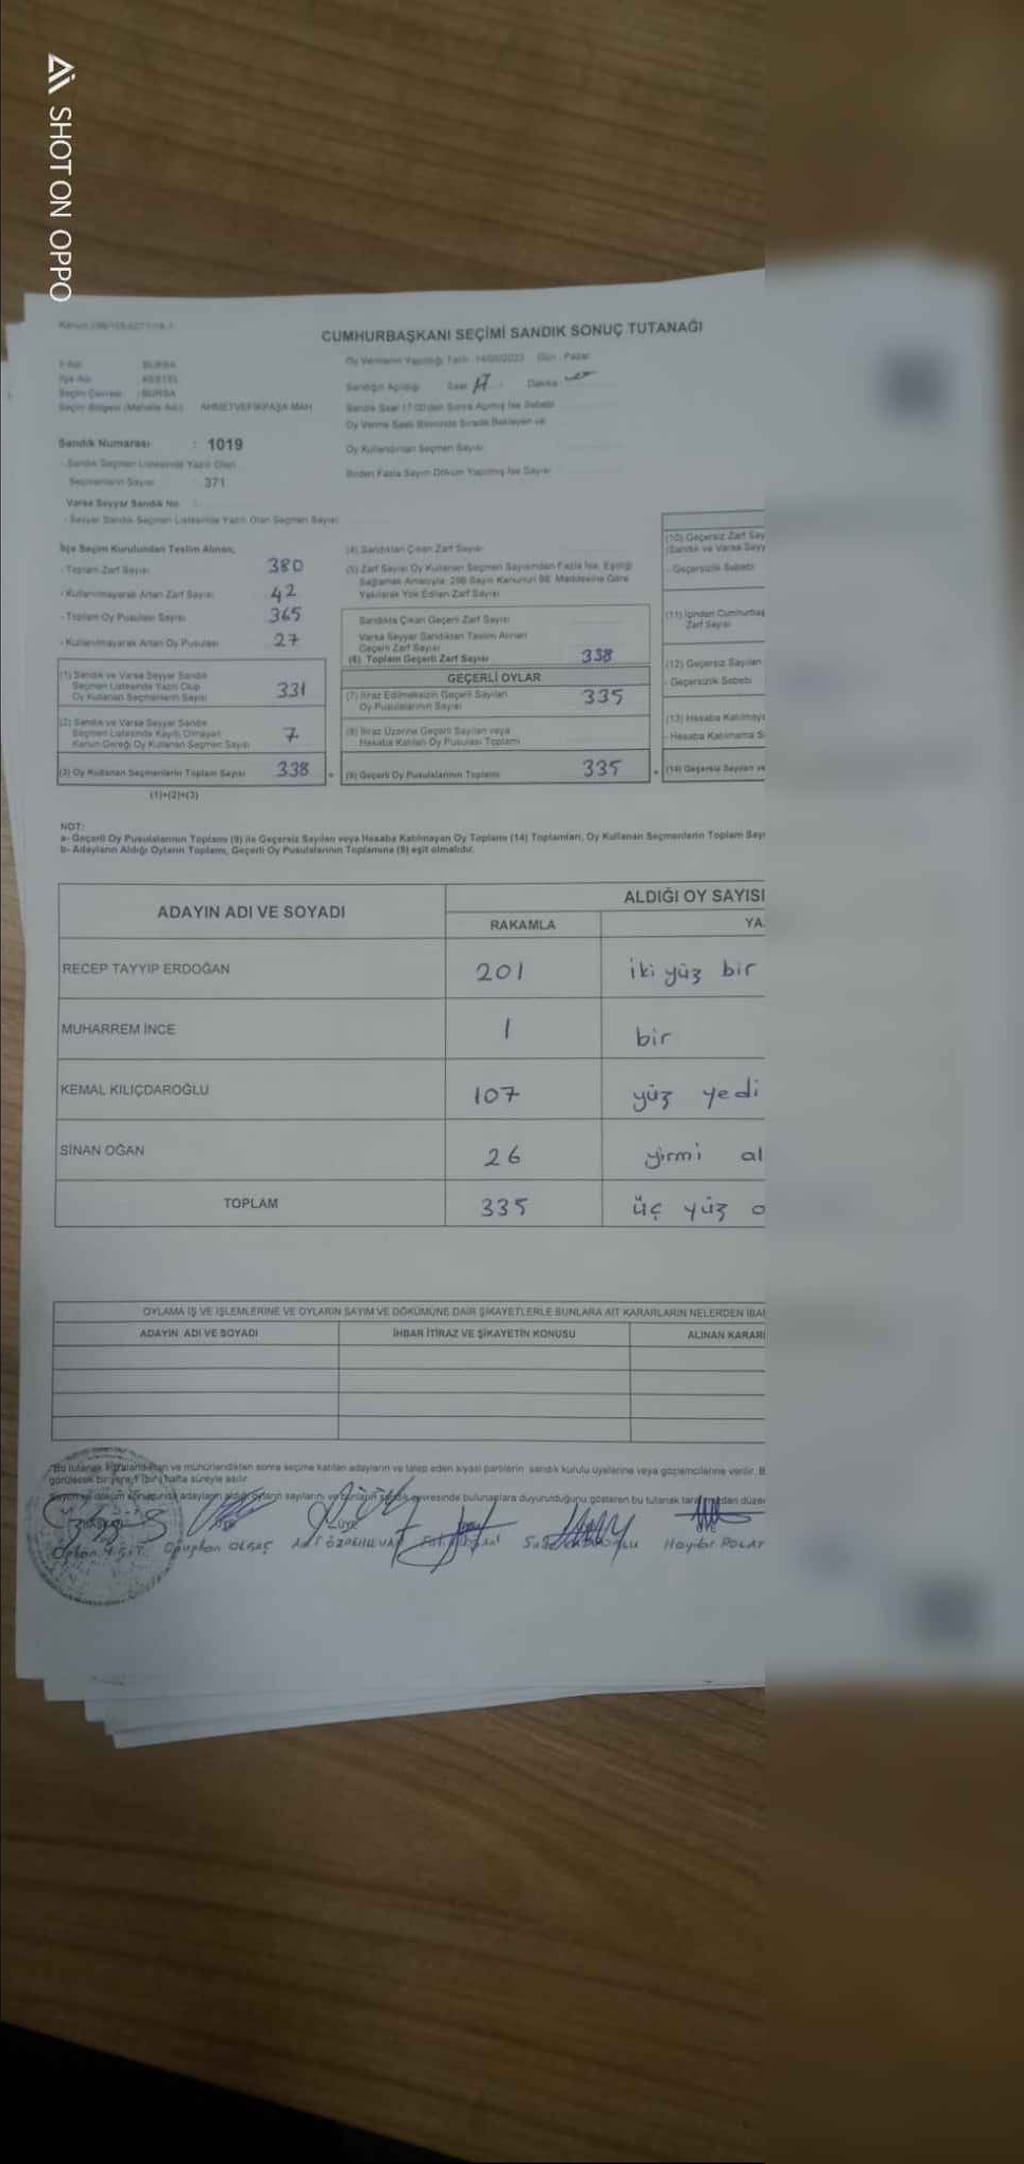 SHOT ON OPPO
CUMHURBAŞKANI SEÇİMİ SANDIK SONUÇ TUTANAĞI
İl Adı : BURSA
İlçe Adı : KESTEL
Seçim Çevresi : BURSA
Seçim Bölgesi (Mahalle Adı) : AHMETVEFİKPAŞA MAH.
Sandık Numarası : 1019
- Sandık Seçmen Listesinde Yazılı Olan
Seçmenlerin Sayısı 371
Varsa Seyyar Sandık No :
- Seyyar Sandık Seçmen Listesinde Yazılı Olan Seçmen Sayısı
Oy Vermenin Yapıldığı Tarih : 14/05/2023 Gün : Pazar
Sandığın Açıldığı Saat 17 : Dakika
Sandık Saat 17:00'den Sonra Açılmış İse Sebebi
Oy Verme Saati Bitiminde Sırada Bekleyen ve
Oy Kullandırılan Seçmen Sayısı
Birden Fazla Sayım Döküm Yapılmış İse Sayısı
İlçe Seçim Kurulundan Teslim Alınan;
- Toplam Zarf Sayısı 380
- Kullanılmayarak Artan Zarf Sayısı 42
- Toplam Oy Pusulası Sayısı 365
- Kullanılmayarak Artan Oy Pusulası 27
(1) Sandık ve Varsa Seyyar Sandık
Seçmen Listesinde Yazılı Olup
Oy Kullanan Seçmenlerin Sayısı 331
(2) Sandık ve Varsa Seyyar Sandık
Seçmen Listesinde Kayıtlı Olmayan
Kanun Gereği Oy Kullanan Seçmen Sayısı 7
(3) Oy Kullanan Seçmenlerin Toplam Sayısı 338
(1)+(2)=(3)
(4) Sandıktan Çıkan Zarf Sayısı
(5) Zarf Sayısı Oy Kullanan Seçmen Sayısından Fazla İse, Eşitliği
Sağlamak Amacıyla 298 Sayılı Kanunun 98. Maddesine Göre
Yakılarak Yok Edilen Zarf Sayısı
Sandıkta Çıkan Geçerli Zarf Sayısı
Varsa Seyyar Sandıktan Teslim Alınan
Geçerli Zarf Sayısı
(6) Toplam Geçerli Zarf Sayısı 338
GEÇERLİ OYLAR
(7) İtiraz Edilmeksizin Geçerli Sayılan
Oy Pusulalarının Sayısı 335
(8) İtiraz Üzerine Geçerli Sayılan veya
Hesaba Katılan Oy Pusulası Toplamı
(9) Geçerli Oy Pusulalarının Toplamı 335
(10) Geçersiz Zarf Say
(Sandık ve Varsa Seyy
- Geçersizlik Sebebi
(11) İçinden Cumhurbaş
Zarf Sayısı
(12) Geçersiz Sayılan
- Geçersizlik Sebebi
(13) Hesaba Katılmaya
- Hesaba Katılmama S
(14) Geçersiz Sayılan ve
NOT:
a- Geçerli Oy Pusulalarının Toplamı (9) ile Geçersiz Sayılan veya Hesaba Katılmayan Oy Toplamı (14) Toplamları, Oy Kullanan Seçmenlerin Toplam Sayı
b- Adayların Aldığı Oyların Toplamı, Geçerli Oy Pusulalarının Toplamına (9) eşit olmalıdır.
ADAYIN ADI VE SOYADI ALDIĞI OY SAYISI
RAKAMLA YA
RECEP TAYYIP ERDOĞAN 201 iki yüz bir
MUHARREM İNCE 1 bir
KEMAL KILIÇDAROĞLU 107 yüz yedi
SİNAN OĞAN 26 yirmi al
TOPLAM 335 üç yüz o
OYLAMA İŞ VE İŞLEMLERİNE VE OYLARIN SAYIM VE DÖKÜMÜNE DAİR ŞİKAYETLERLE BUNLARA AİT KARARLARIN NELERDEN İBA
ADAYIN ADI VE SOYADI İHBAR İTİRAZ VE ŞİKAYETİN KONUSU ALINAN KARAR
ve mühürlendikten sonra seçime katılan adayların ve talep eden siyasi partilerin sandık kurulu üyelerine veya gözlemcilerine verilir. B
hafta süreyle asılır.
çevresinde bulunanlara duyurulduğunu gösteren bu tutanak
ÜYE
Oğuzhan OLGAÇ Haydar POLAT